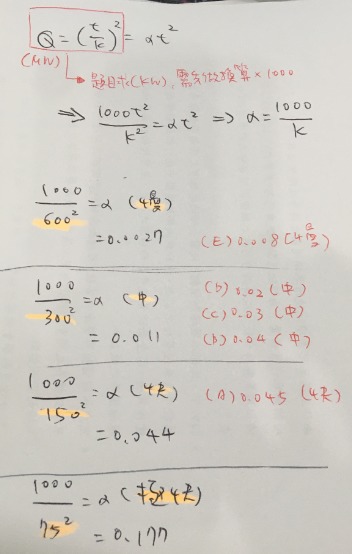 Q = (t/k)² = αt²
(MW)
題目求(KW), 需多做換算×1000
⇒ 1000t²/k² = αt² ⇒ α = 1000/k
1000/600² = α (慢)
= 0.0027
(E) 0.008 (慢)
1000/300² = α (中)
= 0.011
(D) 0.02 (中)
(C) 0.03 (中)
(B) 0.04 (中)
1000/150² = α (快)
= 0.044
(A) 0.045 (快)
1000/75² = α (超快)
= 0.177